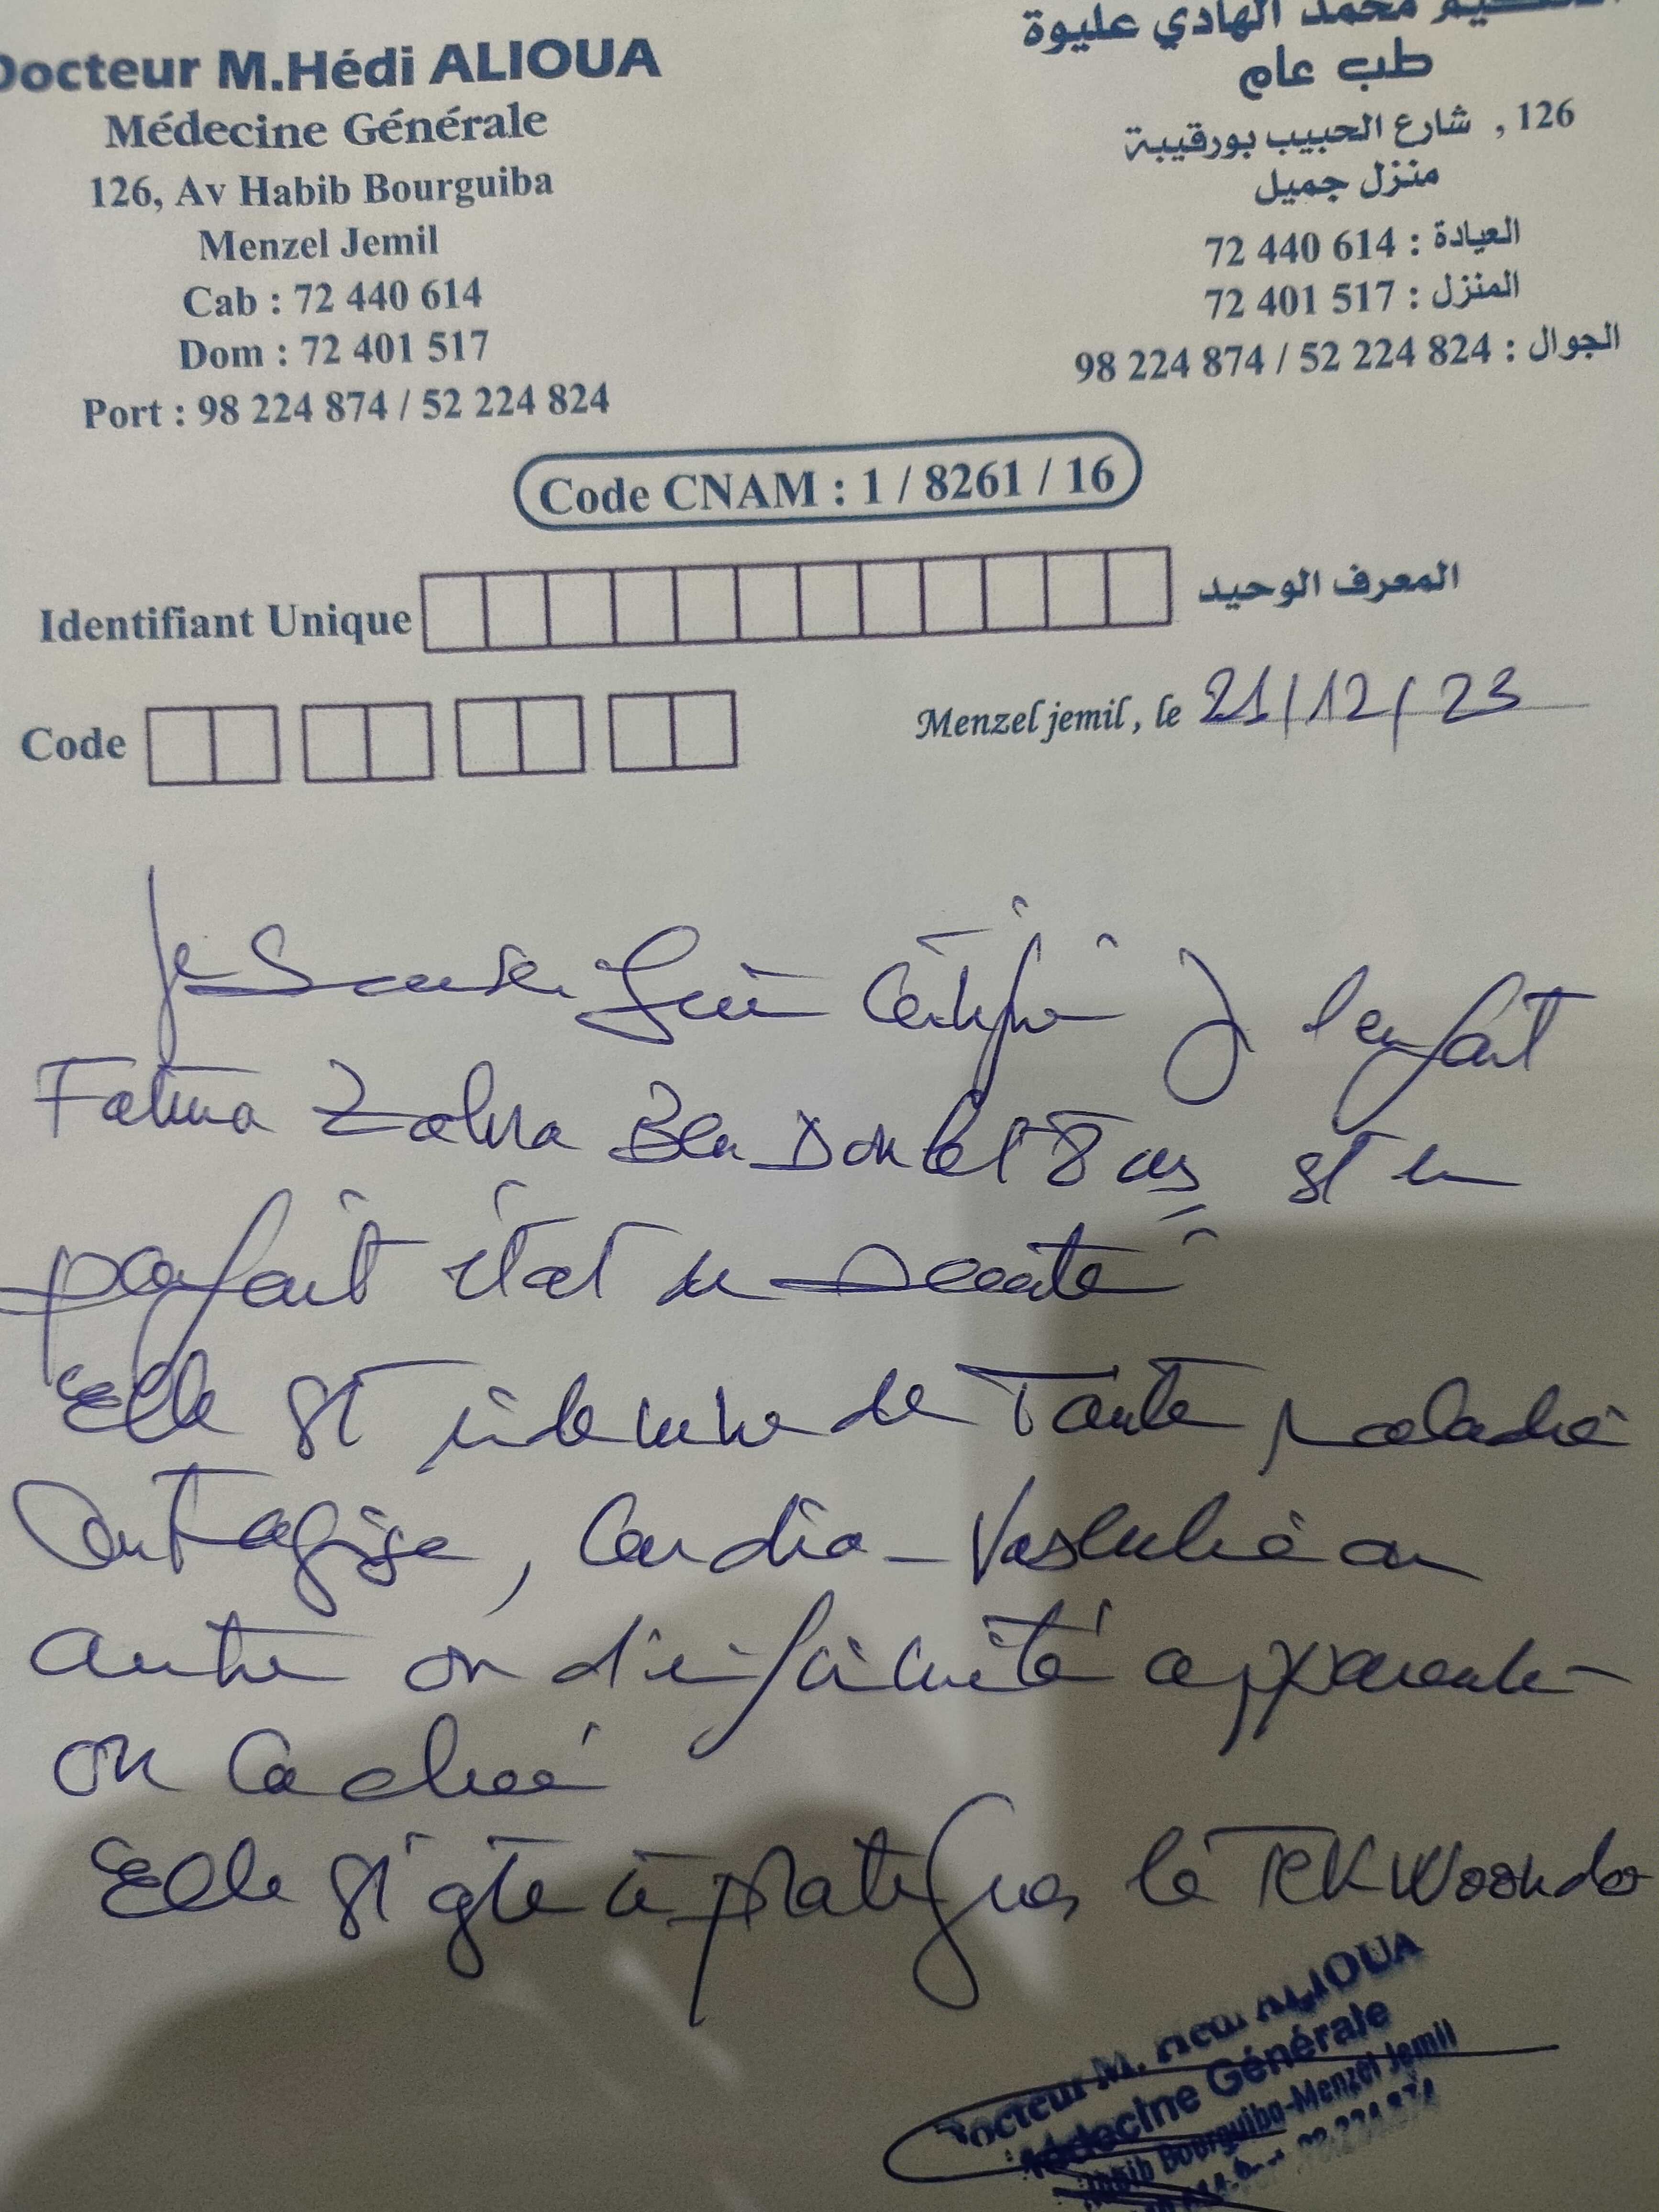 Docteur M.Hédi ALIOUA
Médecine Générale
126, Av Habib Bourguiba
Menzel Jemil
Cab : 72 440 614
Dom : 72 401 517
Port : 98 224 874 / 52 224 824
محمد الهادي عليوة
طب عام
126 , شارع الحبيب بورقيبة
منزل جميل
العيادة : 72 440 614
المنزل : 72 401 517
الجوال : 98 224 874 / 52 224 824
Code CNAM : 1 / 8261 / 16
Identifiant Unique المعرف الوحيد
Code
Menzel jemil, le 21/12/23
Je certifie l'enfant
Fatma Zohra Ben 8 ans est en
parfait état de santé
Elle est indemne de toute maladie
contagieuse, cardio-vasculaire ou
autre ou d'infirmité apparente
ou cachée
Elle est apte à pratiquer le TEKWOONDO
Docteur M. Hédi ALIOUA
Médecine Générale
Habib Bourguiba-Menzel Jemil